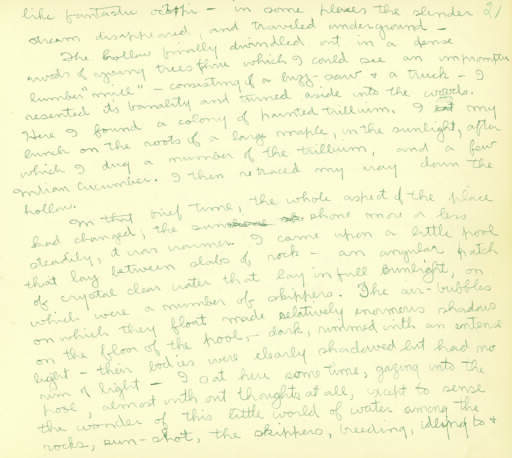 like fantastic octopi – in some places the slender 21
stream disappeared, and traveled underground –
The hollow finally dwindled out in a dense
woods of young trees thru which I could see an impromptu
lumber "mill" – consisting of a buzz-saw & a truck – I
resented its banality and turned aside into the woods.
Here I found a colony of painted trillium. I eat my
lunch on the roots of a large maple, in the sunlight, after
which I dug a number of the trillium, and a few
Indian Cucumber. I then retraced my way down the
hollow.
In that brief time, the whole aspect of the place
had changed, the sun shone more or less
steadily, it was warmer. I came upon a little pool
that lay between slabs of rock – an angular patch
of crystal clear water that lay in full sunlight, on
which were a number of skippers. The air-bubbles
on which they float made relatively enormous shadows
on the floor of the pool, – dark, rimmed with an intense
light – their bodies were clearly shadowed but had no
rim of light – I sat here some time, gazing into the
pool, almost without thoughts at all, except to sense
the wonder of this little world of water among the
rocks, sun-shot, the skippers, breeding, idling to &